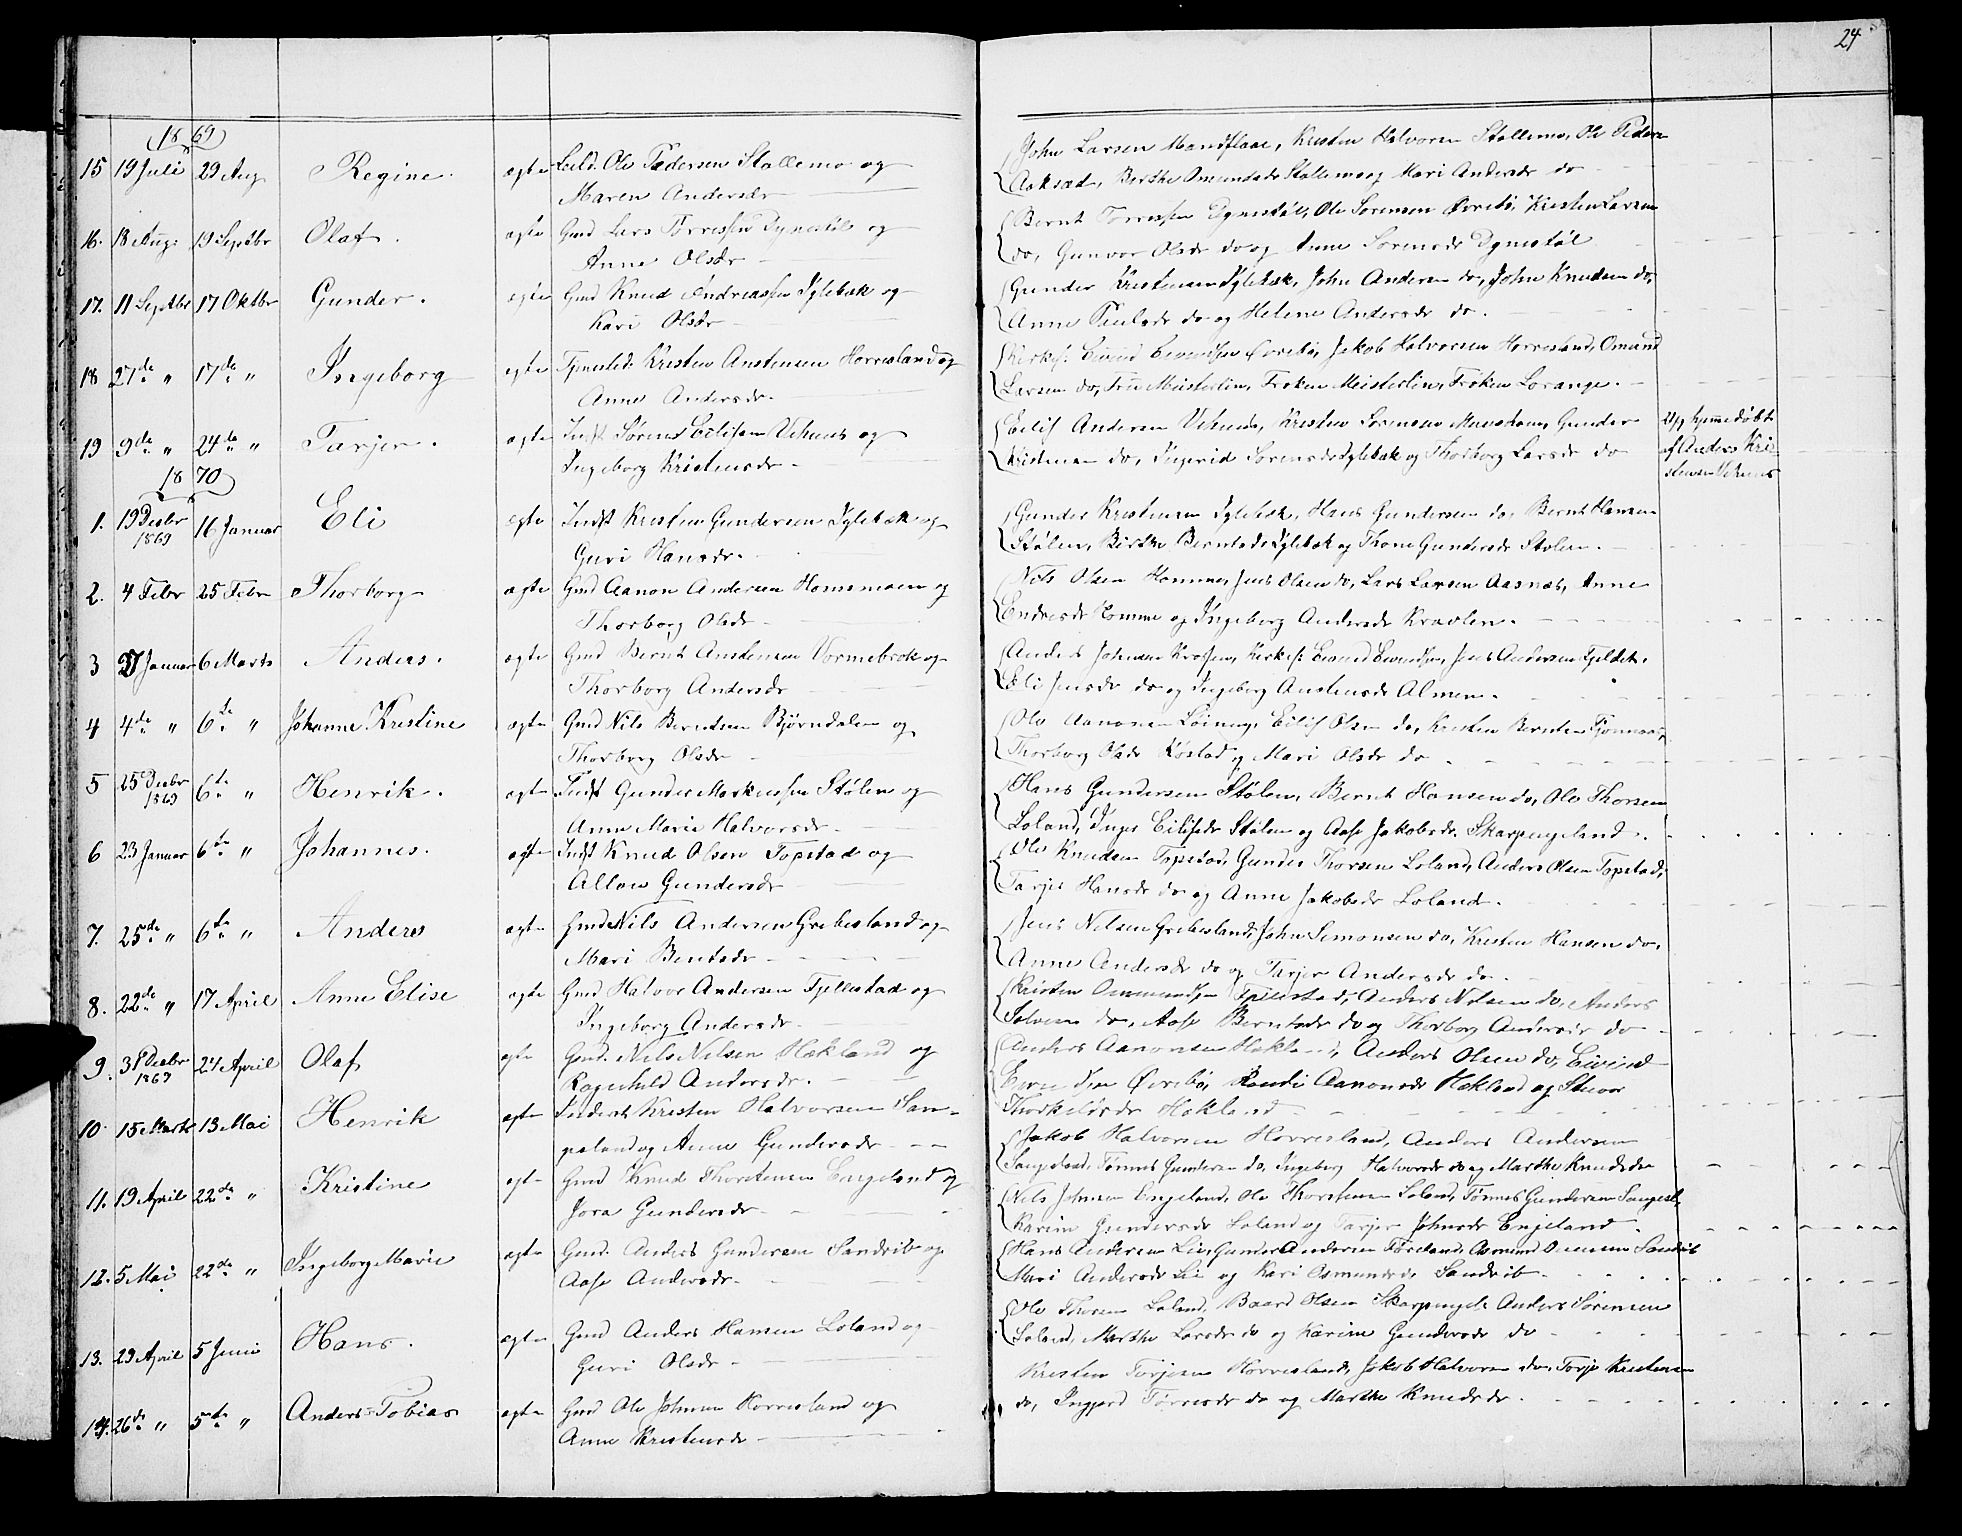 24
1869
15 19 Juli 29 Aug Regine. ægte Leild. Ole Pedersen Stallemo og
Maren Andersdr
John Larsen Mandflaae, Kristen Halvorsen Stallemo, Ole Peders
Aaksæd, Berthe Omundsdr Stallemo og Mari Andersdr do
16. 18 Aug. 19 Septbr Olaf. ægte Gmd Lars Tørressen Dynestøl og
Anne Olsdr
Bernt Tørressen Dynestøl, Ole Sørensen Øvrebø, Kristen Larsen
do, Gunvor Olsdr do og Anne Sørensdr Dynestøl
17. 11 Septbr 17 Oktbr Gunder. ægte Gmd Knud Andreassen Iglebæk og
Kari Olsdr
Gunder Kristensen Iglebæk, John Andersen do, John Knudsen do,
Anne Paulsdr do og Helene Andersdr do.
18 27de " 17de " Ingeborg ægte Tjenested. Kristen Anstensen Horrisland og
Anne Andersdr.
Kirkes. Eivind Eivindsen Øvrebø, Jakob Halvorsen Horrisland, Omund
Larsen do, Frue Meisterlin, Frøken Meisterlin, Frøken Lorange.
19 9de " 24de " Tarjer. ægte Indst Søren Eilifsen Vehuus og
Ingeborg Kristensdr
Eilif Andersen Vehuus, Kristen Sørensen, Gunder
Kristensen do, Ingerid Sørensdr Iglebæk og Thorborg Larsdr do
hjemmedøbt
af Anders Kri-
stensen Vehuus
1870
1. 19 Decbr 1869 16 Januar Eli ægte Indst Kristen Gundersen Iglebæk og
Guri Hansdr.
Gunder Kristensen Iglebæk, Hans Gundersen do, Bernt Hansen
Stølen, Birthe Berntsdr Iglebæk og Thone Gundersdr Stølen.
2. 4 Febr 25 Febr Thorborg ægte Gmd Aanon Andersen Hommemoen og
Thorborg Olsdr
Nils Olsen Homme, Jens Olsen do, Lars Larsen Aasnæs, Anne
Endresdr Homme og Ingeborg Andersdr Kravlen.
3 27 Januar 6 Marts Anders. ægte Gmd Bernt Anstensen Vormebrok og
Thorborg Andersdr
Anders Johnsen, Kirkes: Eivind Eivindsen, Jens Andersen Fjeldet,
Eli Jensdr do og Ingeborg Anstensdr Almen.
4 4de " 6te " Johanne Kristine ægte Gmd Nils Berntsen Bjørndalen og
Thorborg Olsdr
Ole Aanonsen, Eilif Olsen do, Kristen Berntsen
Thorborg Olsdr Røstad og Mari Olsdr do
5 25 Decbr 1869 6te " Henrik. ægte Indst Gunder Markussen Stølen og
Anne Marie Halvorsdr
Hans Gundersen Stølen, Bernt Hansen do, Ole Thorsen
Loland, Inger Eilifsdr Stølen og Aase Jakobsdr Skarpengeland.
6 23 Januar 6te " Johannes. ægte Indst Knud Olsen Topstad og
Allow Gundersdr
Ole Knudsen Topstad, Gunder Thorsen Loland, Anders Olsen Topstad,
Tarjer Hansdr do og Anne Jakobsdr Loland.
7. 25de " 6te " Anders ægte Gmd Nils Andersen Grebesland og
Mari Bentsdr
Jens Nilsen Grebesland, John Simonsen do, Kristen Hansen do,
Anne Andersdr do og Tarjer Andersdr do.
8. 22de " 17 April Anne Elise ægte Gmd Halvor Andersen Fjellestad og
Ingeborg Andersdr.
Kristen Ommundsen Fjellestad, Anders Nilsen do, Anders
Salvesen do, Aase Berntsdr do og Thorborg Andersdr do
9. 31 Decbr 1869 24 April Olaf ægte Gmd. Nils Nilsen Hækland og
Ragnhild Andersdr.
Anders Aanonsen Hækland, Anders Olsen do, Eivind
Eivindsen Øvrebø, Randi Aanonsdr Hækland og
Thorkelsdr Hækland
10. 15 Marts 13 Mai Henrik ægte Inderst Kristen Halvorsen San-
geland og Anne Gundersdr
Jakob Halvorsen Horrisland, Anders Andersen
Sangeland, Tønnes Gundersen do, Ingeborg Halvorsdr do og Marthe Knudsdr
11. 19 April 22de " Kristine ægte Gmd Knud Thorstensen Engeland og
Jora Gundersdr
Nils Johnsen Engeland, Ole Thorstensen Loland, Tønnes Gundersen Sangesl.
Karine Gundersdr Loland og Tarjer Johnsdr Engeland.
12. 5 Mai 22de " Ingeborg Marie ægte Gmd. Anders Gundersen Sandrib og
Aase Andersdr.
Hans Andersen Lie, Gunder Andersen, Osmund Sandrib
Mari Andersdr Lie og Kari Osmundsdr Sandrib.
13. 29 April 5 Juni Hans. ægte Gmd Anders Hansen Loland og
Guri Olsdr
Ole Thorsen Loland, Baard Olsen Skarpengel. Anders Sørensen
Loland, Marthe Larsdr do og Karine Gundersdr do
14. 26de " 5te " Anders=Tobias ægte Gmd Ole Johnsen Horrisland og
Anne Kristensdr
Kristen Torjesen Horrisland, Jakob Halvorsen do, Torje Kristensen
do, Ingjerd Tørresdr do og Marthe Knudsdr.